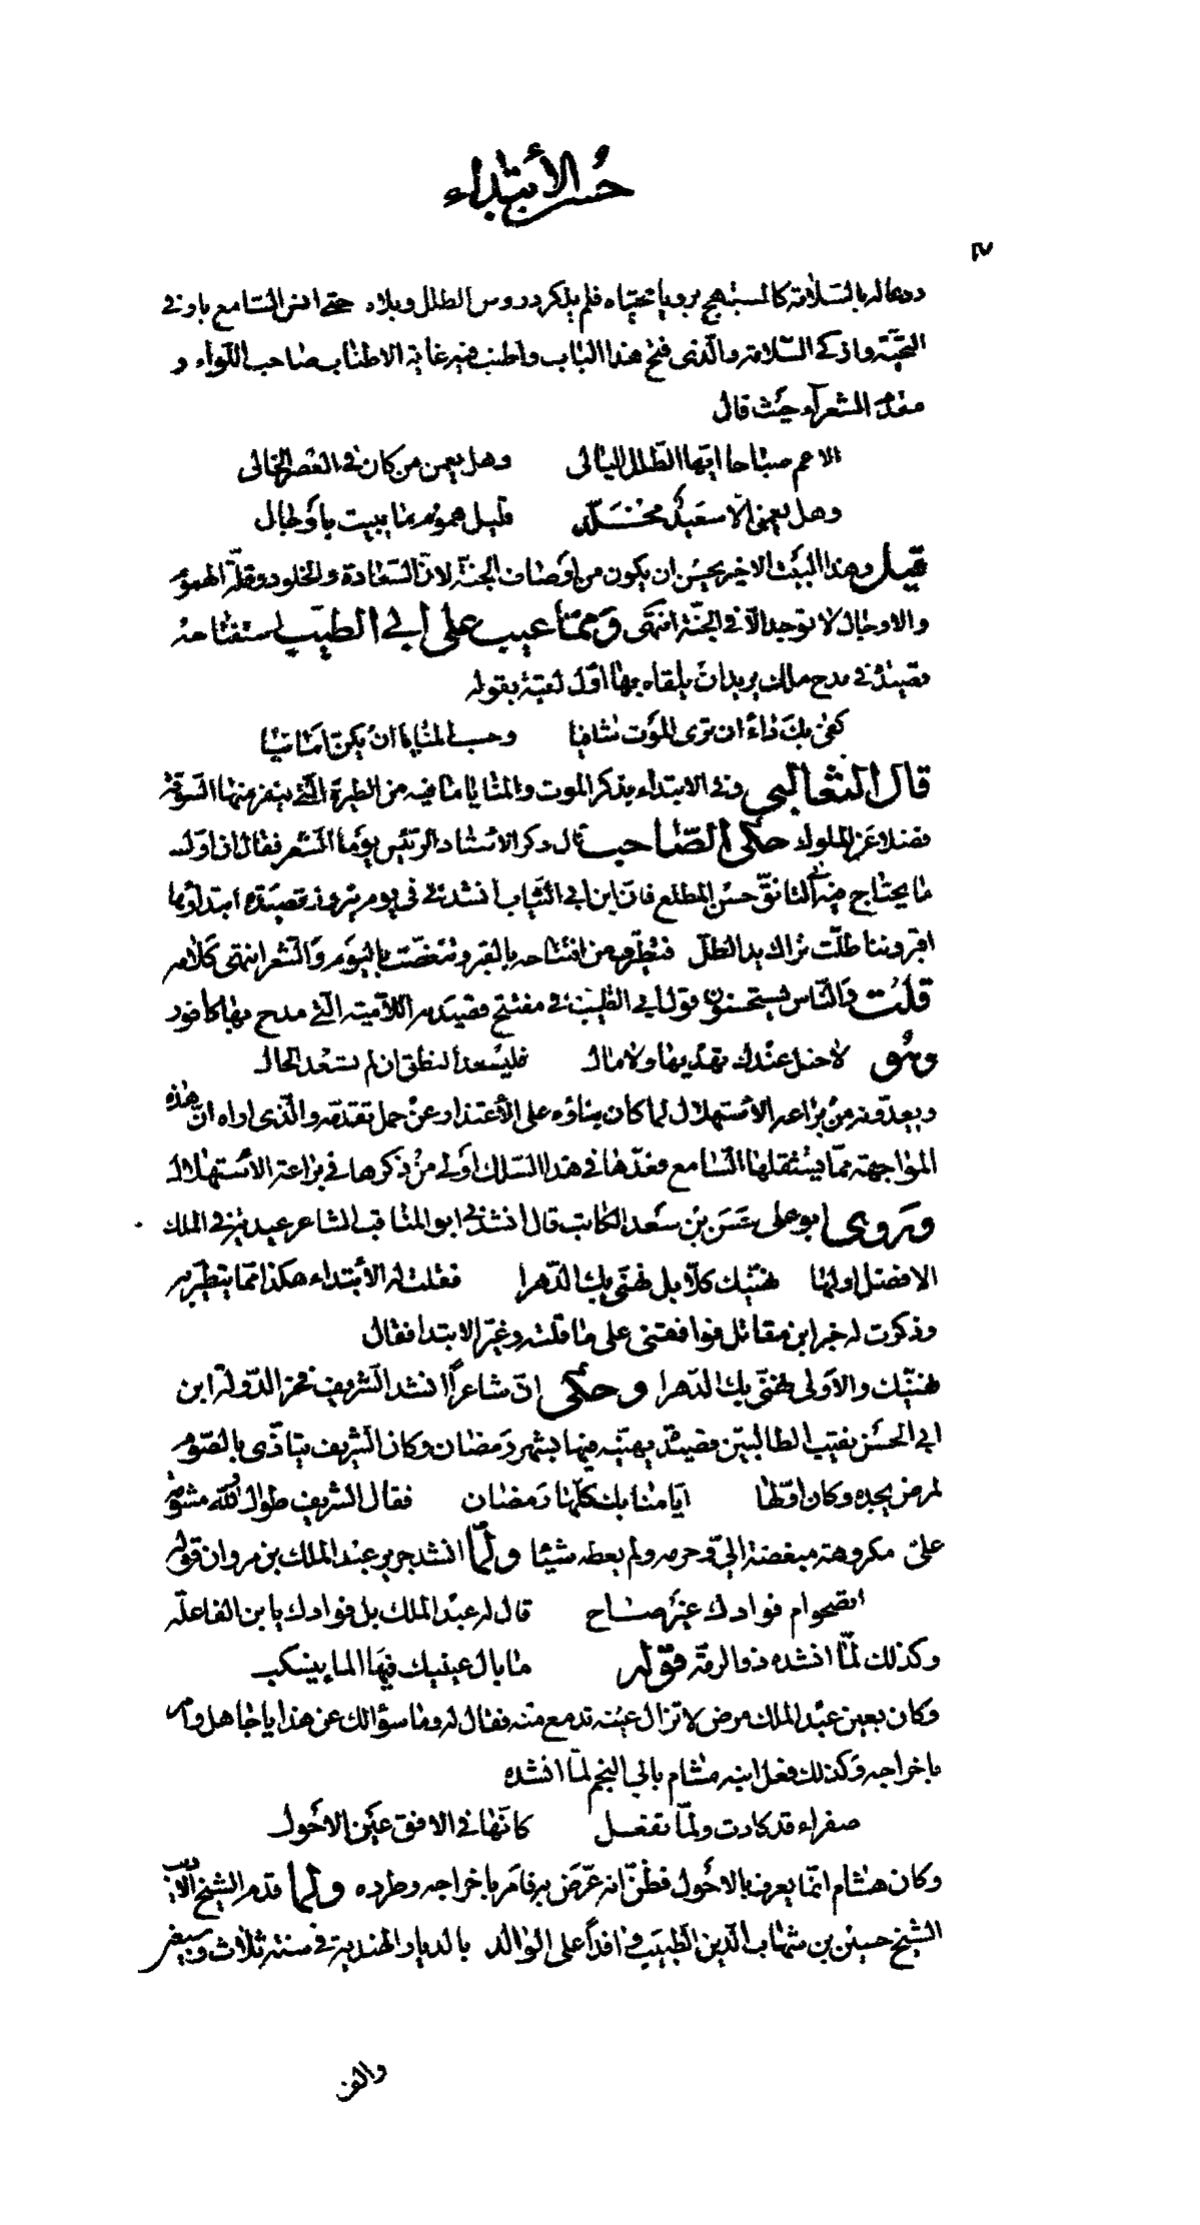 حُسن الأبتداء
٧
ودعا له بالسّلامة كالمستبهج برويا تحيّاه فلم يذكر دروس الطلل وبلاه حتى انس السّامع باوفى
التحيّة وازكى السّلامة والّذى فتح هذا الباب واطنب فيه غاية الاطناب صاحب اللّواء و
مقدّم الشعرآء حيث قال
الا عم صباحا ايّها الطّلل البالى وهل يعمن من كان فى العصر الخالى
وهل يعمن الّا سعيد مخلّد قليل هموم ما يبيت باوجال
قيل وهذا البيت الاخير يحسن ان يكون من اوصاف الجنّة لانّ السّعادة والخلود وقلّة الهموم
والاوجال لا توجد الّا فى الجنّة انتهى وممّا عيب على ابى الطيّب استفتاحه
قصيدة فى مدح ملك يريد ان يلقاه بها اوّل لقية بقوله
كفى بك داءً ان ترى الموت شافيا وحسب المنايا ان يكنّ امانيا
قال الثعالبى وفى الابتداء بذكر الموت والمنايا ما فيه من الطيرة الّتى ينفر منها السّوقة
فضلا عن الملوك حكى الصّاحب قال ذكر الاستاد الرئيس يوما الشّعر فقال انّ اوّل
ما يحتاج فيه الى التانّق حسن المطلع فانّ ابن ابى الشّباب انشدنى فى يوم نيروز قصيدة ابتداؤها
اقبر وما طلّت ثراك يد الطلّ فتطيّرت من افتتاحه بالقبر وتنغّصت باليوم والشّعر انتهى كلامه
قلت والنّاس يستحسنون قول ابى الطّيّب فى مفتتح قصيدته اللّاميّة الّتى مدح بها كافور
وهو لا خيل عندك تهديها ولا مال فليسعد النّطق ان لم تسعد الحال
ويعدّونه من براعة الاستهلال لما كان بناؤه على الأعتذار عن حمل تقدّمه والّذى اراه انّ هذه
المواجهة ممّا يستثقلها السّامع فعدّها فى هذا السّلك اولى من ذكرها فى براعة الاستهلال
وروى ابو على حسن بن سعد الكاتب قال انشدنى ابو المناقب الشاعر عيديّة فى الملك
الافضل اولها نهنّيك كلّا بل نهنّى بك الدّهرا فقلت له الأبتداء هكذا ممّا يتطيّر به
وذكرت له خبر ابن مقاتل فوافقنى على ما قلته وغيّر الابتدا فقال
نهنّيك والاولى نهنّى بك الدّهرا وحكى انّ شاعراً انشد الشّريف فخر الدّولة ابن
ابى الحسن نقيب الطالبيّين قصيدة يهنّيه فيها بشهر رمضان وكان الشّريف يتاذّى بالصّوم
لمرض يجده وكان اوّلها ايّامنا بك كلّها رمضان فقال الشّريف طوال واللّه مشومة
علىّ مكروهة مبغضة الىّ وحرمه ولم يعطه شيئا ولمّا انشد جرير عبد الملك بن مروان قوله
اتصحوام فوادك غير صاح قال له عبد الملك بل فوادك يا بن الفاعلة
وكذلك لمّا انشده ذو الرمّة قوله ما بال عينيك فيها الما ينسكب
وكان بعين عبد الملك مرض لا تزال عينه تدمع منه فقال له وما سؤالك عن هذا يا جاهل وامر
باخراجه وكذلك فعل ابنه هشام بابى النجم لمّا انشده
صفراء قد كادت ولمّا تفعل كانّها فى الافق عين الاحول
وكان هشام انّما يعرف بالاحول فظنّ انه عرّض به فامر باخراجه وطرده ولما قدم الشيخ الاديب
الشيخ حسين بن شهاب الدّين الطّبيب وافداً على الوالد بالديار الهندية فى سنة ثلاث وسبعين
والف